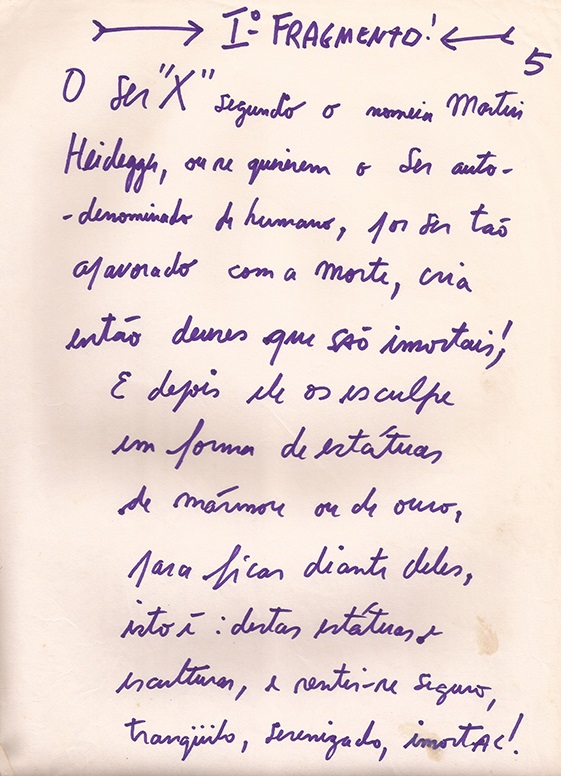 Iº FRAGMENTO!
5
O Ser "X" segundo o nomeia Martin
Heidegger, ou se quiserem o Ser auto-
-denominado de humano, por ser taõ
apavorado com a morte, cria
então deuses que saõ imortais!
E depois ele os esculpe
em forma de estátuas
de mármore ou de ouro,
para ficar diante deles,
isto é: destas estátuas e
esculturas, e sentir-se seguro,
tranqüilo, serenizado, imortal!